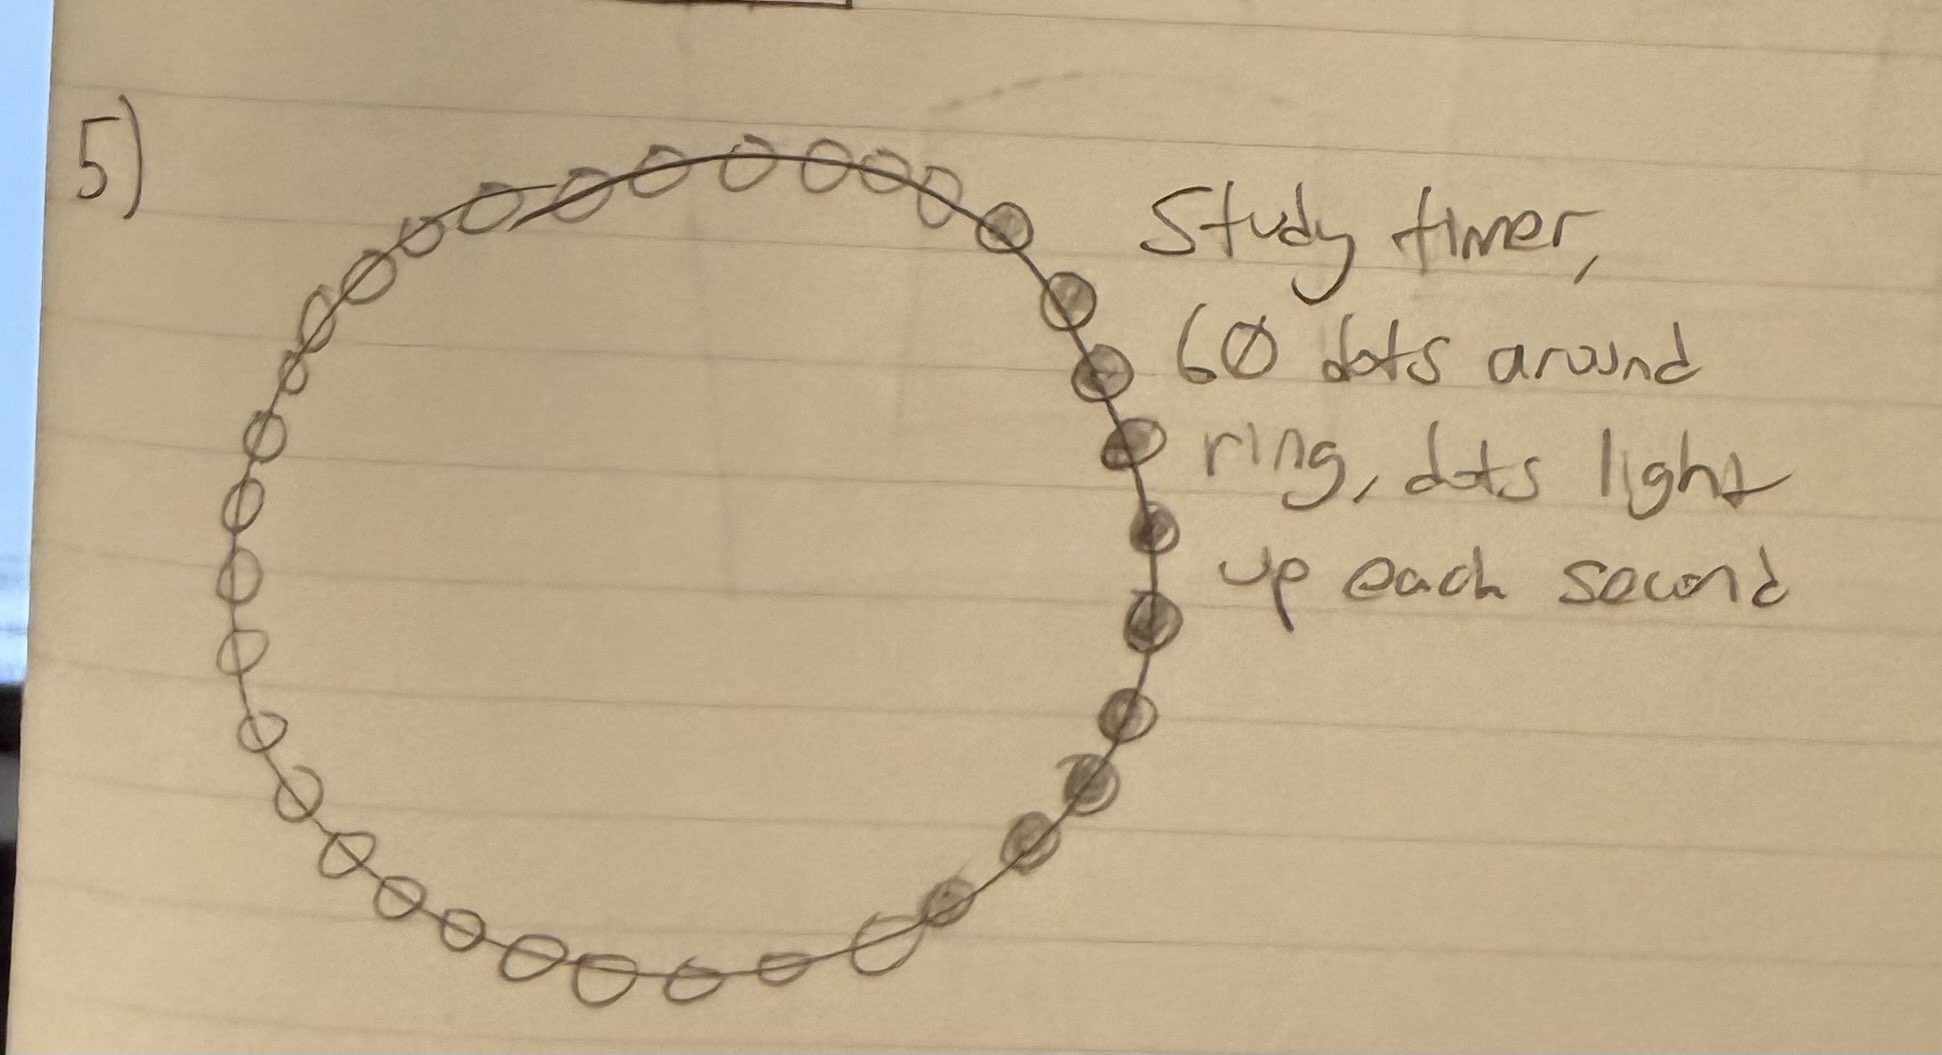 5)
Study timer,
60 dots around
ring, dots light
up each second